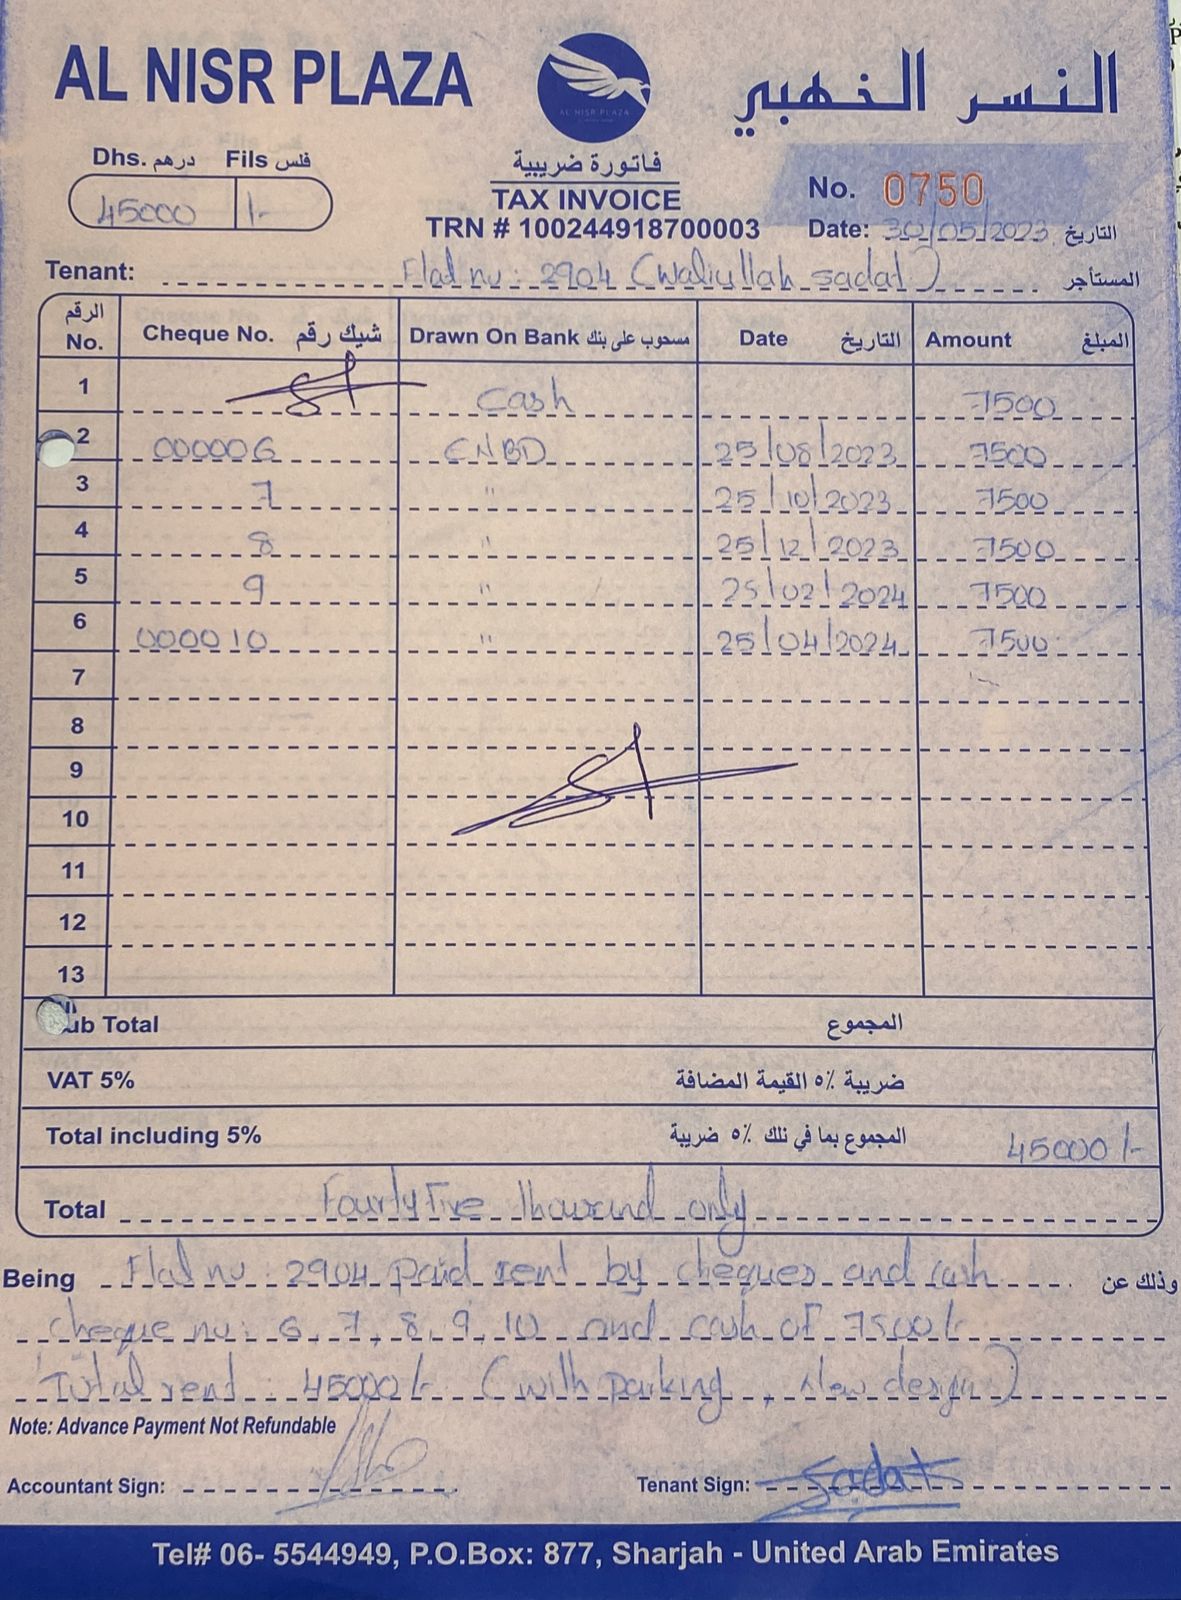 AL NISR PLAZA
AL NISR PLAZA
النسر الذهبي
Dhs. درهم Fils فلس
45000 /-
فاتورة ضريبية
TAX INVOICE
TRN # 100244918700003
No. 0750
Date: 30/05/2023 التاريخ
Tenant: Flat no: 2904 (Waliullah sadat) المستأجر
الرقم No. Cheque No. شيك رقم Drawn On Bank مسحوب على بنك Date التاريخ Amount المبلغ
1 Cash 7500
2 000006 ENBD 25/08/2023 7500
3 7 " 25/10/2023 7500
4 8 " 25/12/2023 7500
5 9 " 25/02/2024 7500
6 000010 " 25/04/2024 7500
7
8
9
10
11
12
13
Sub Total المجموع
VAT 5% ضريبة ٥٪ القيمة المضافة
Total including 5% المجموع بما في ذلك ٥٪ ضريبة 45000/-
Total Fourty Five Thousand only
Being Flat no: 2904 paid rent by cheques and cash وذلك عن
cheque no: 6, 7, 8, 9, 10 and cash of 7500/-
Total rent: 45000/- (with parking, New design)
Note: Advance Payment Not Refundable
Accountant Sign: Tenant Sign: Sadat
Tel# 06- 5544949, P.O.Box: 877, Sharjah - United Arab Emirates